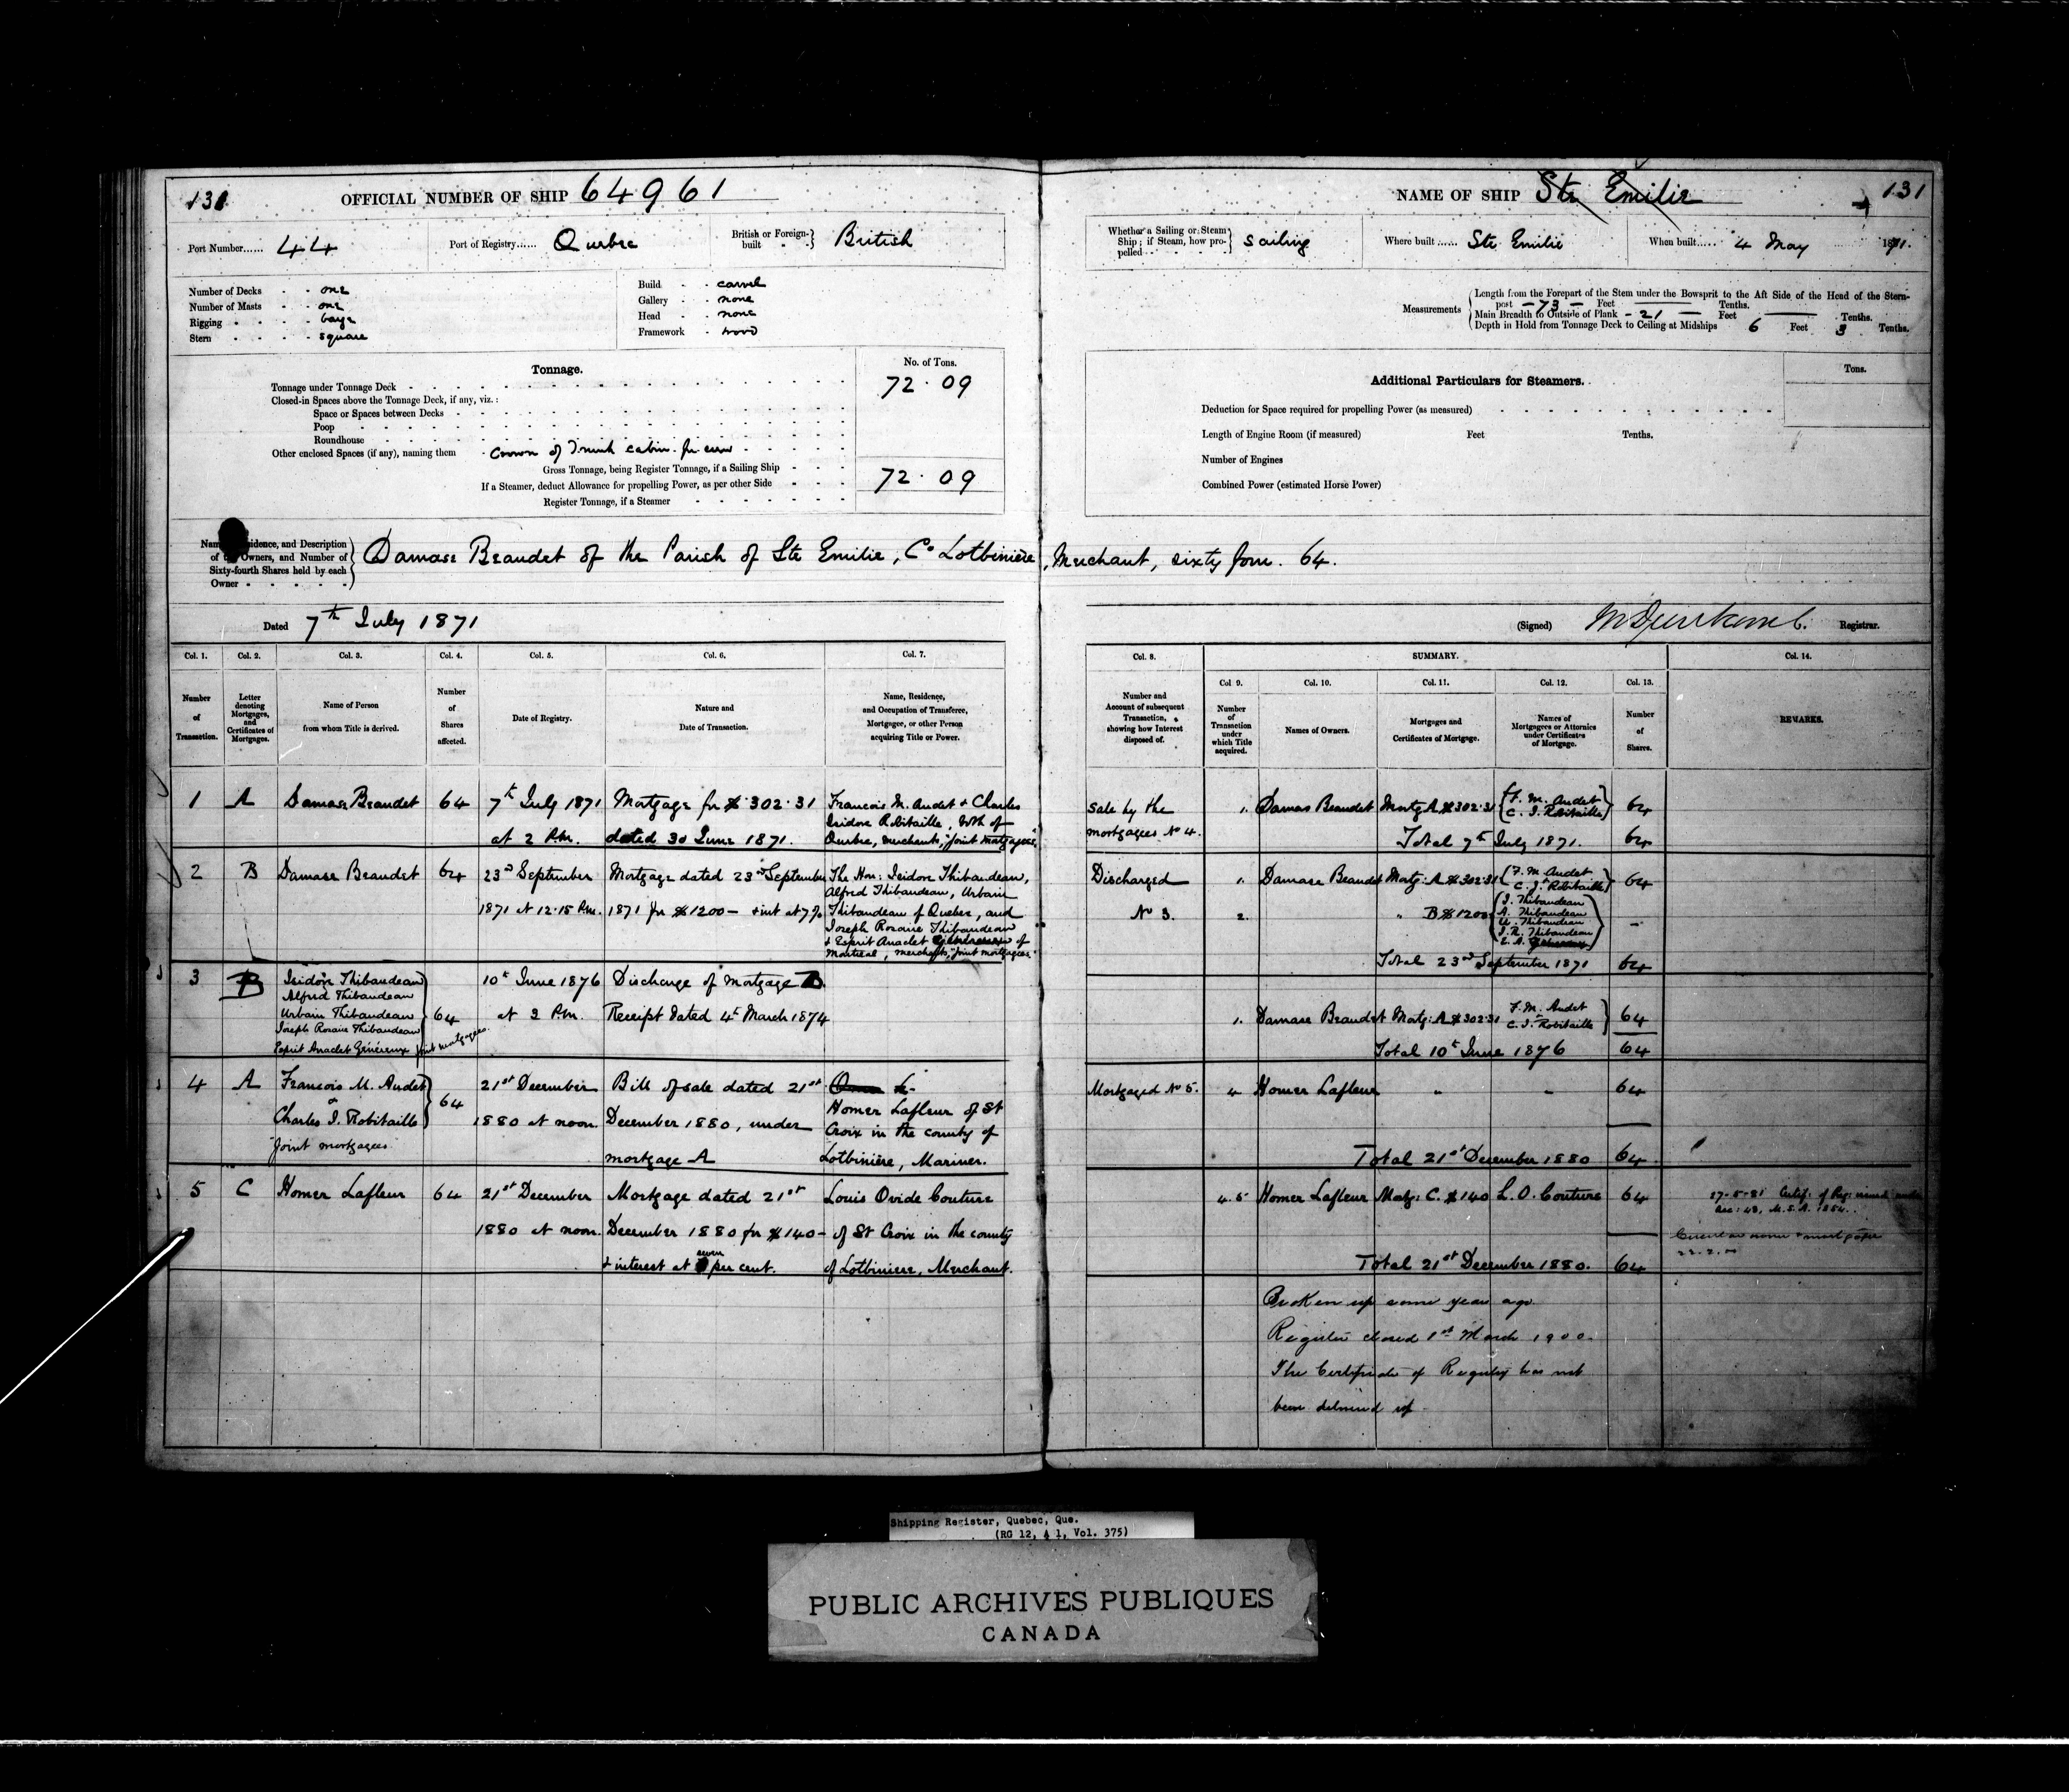 131
OFFICIAL NUMBER OF SHIP 64961
Port Number...... 44
Port of Registry...... Quebec
British or Foreign-built British
Number of Decks - - one
Number of Masts - - one
Rigging - - - - barge
Stern - - - - square
Build - - carvel
Gallery - - none
Head - - none
Framework - wood
Tonnage.
No. of Tons.
Tonnage under Tonnage Deck 72.09
Closed-in Spaces above the Tonnage Deck, if any, viz.:
Space or Spaces between Decks
Poop
Roundhouse
Other enclosed Spaces (if any), naming them Crown of Trunk cabin for crew
Gross Tonnage, being Register Tonnage, if a Sailing Ship
If a Steamer, deduct Allowance for propelling Power, as per other Side 72.09
Register Tonnage, if a Steamer
NAME OF SHIP Ste Emilie 131
Whether a Sailing or Steam Ship; if Steam, how propelled Sailing
Where built ...... Ste Emilie
When built ..... 4 May 1871.
Measurements
Length from the Forepart of the Stem under the Bowsprit to the Aft Side of the Head of the Stern-
post - 73 - Feet Tenths.
Main Breadth to Outside of Plank - 21 - Feet Tenths.
Depth in Hold from Tonnage Deck to Ceiling at Midships 6 Feet 3 Tenths.
Additional Particulars for Steamers.
Tons.
Deduction for Space required for propelling Power (as measured)
Length of Engine Room (if measured) Feet Tenths.
Number of Engines
Combined Power (estimated Horse Power)
and Description
Owners, and Number of
Sixty-fourth Shares held by each
Owner
Damase Beaudet of the Parish of Ste Emilie, Co Lotbinière, Merchant, sixty four. 64.
Dated 7th July 1871
(Signed) Registrar.
Col. 1. Col. 2. Col. 3. Col. 4. Col. 5. Col. 6. Col. 7.
Number of Transaction.
Letter denoting Mortgages, and Certificates of Mortgages.
Name of Person from whom Title is derived.
Number of Shares affected.
Date of Registry.
Nature and Date of Transaction.
Name, Residence, and Occupation of Transferee, Mortgagee, or other Person acquiring Title or Power.
Col. 8. SUMMARY. Col. 14.
Col 9. Col. 10. Col. 11. Col. 12. Col. 13.
Number and Account of subsequent Transaction, showing how Interest disposed of.
Number of Transaction under which Title acquired.
Names of Owners.
Mortgages and Certificates of Mortgage.
Names of Mortgagees or Attornies under Certificates of Mortgage.
Number of Shares.
REMARKS.
1 A Damase Beaudet 64 7th July 1871 Mortgage for $302.31 Francois M. Audet & Charles
Isidore Robitaille, both of
at 2 P.M. dated 30 June 1871. Quebec, merchants, "joint mortgagees."
2 B Damase Beaudet 64 23rd September Mortgage dated 23rd September The Hon: Isidore Thibaudeau,
Alfred Thibaudeau, Urbain
1871 at 12.15 P.M. 1871 for $1200 - & int at 7% Thibaudeau of Quebec, and
Joseph Rosaire Thibaudeau
& Esprit Anaclet Généreux of
Montreal, merchants, "joint mortgagees."
3 B Isidore Thibaudeau 10th June 1876 Discharge of Mortgage B.
Alfred Thibaudeau
Urbain Thibaudeau 64 at 2 P.M. Receipt dated 4th March 1874
Joseph Rosaire Thibaudeau
Esprit Anaclet Généreux joint mortgagees.
4 A Francois M. Audet 21st December Bill of sale dated 21st
& 64 Homer Lafleur of St
Charles I. Robitaille 1880 at noon. December 1880, under Croix in the county of
"Joint mortgagees" mortgage A Lotbinière, Mariner.
5 C Homer Lafleur 64 21st December Mortgage dated 21st Louis Ovide Couture
1880 at noon. December 1880 for $140 - of St Croix in the county
& interest at seven per cent. of Lotbiniere, Merchant.
Sale by the 1. Damas Beaudet Mortg A $302.31 F. M. Audet 64
mortgagees No 4. C. I. Robitaille
Total 7th July 1871. 64
Discharged 1. Damase Beaudet Mortg: A $302.31 F. M. Audet 64
C. I. Robitaille
No 3. 2. " B $1200 I. Thibaudeau -
A. Thibaudeau
U. Thibaudeau
J. R. Thibaudeau
E. A. Généreux
Total 23rd September 1871 64
1. Damase Beaudet Mortg: A $302.31 F. M. Audet 64
C. I. Robitaille
Total 10th June 1876 64
Mortgaged No 5. 4 Homer Lafleur " " 64
Total 21st December 1880 64
4.5 Homer Lafleur Mortg: C. $140 L. O. Couture 64 27-5-81 Certif. of Reg: issued under
Sec: 48, M. S. A. 1854.
Total 21st December 1880. 64
Broken up some years ago.
Register closed 1st March 1900.
The Certificate of Registry has not
been delivered up.
Shipping Register, Quebec, Que.
(RG 12, A 1, Vol. 375)
PUBLIC ARCHIVES PUBLIQUES
CANADA